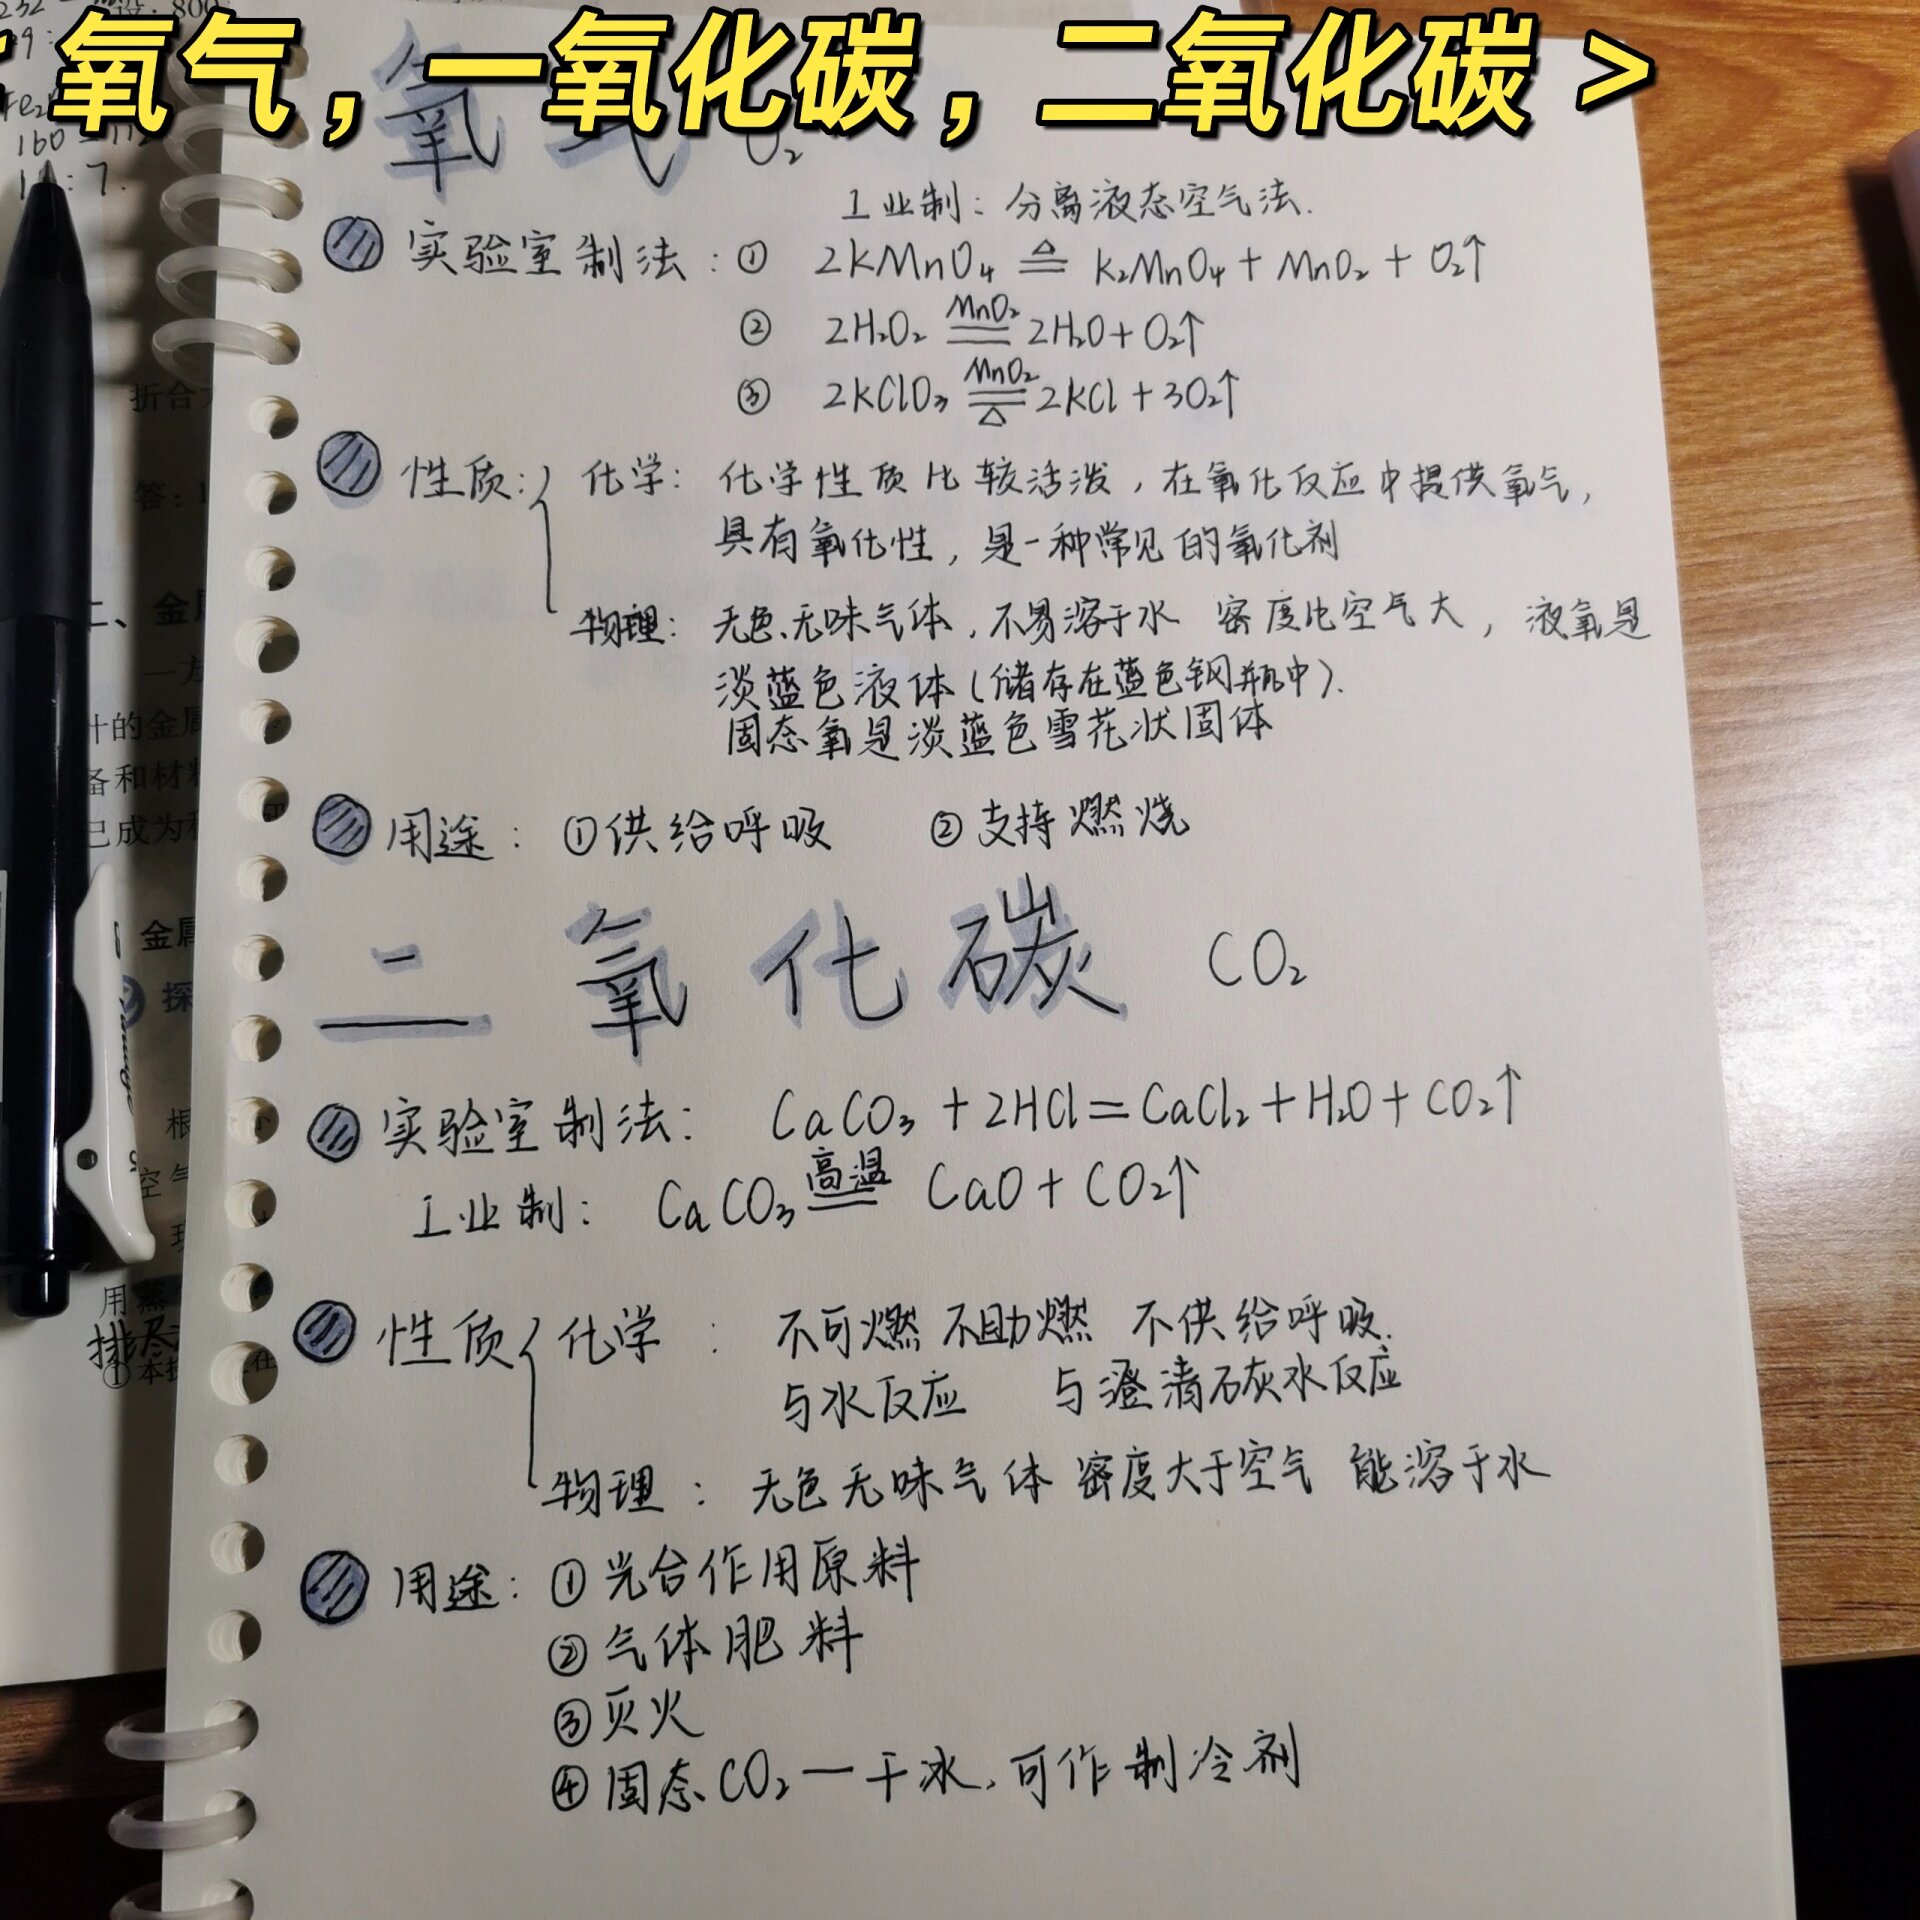 氧气，一氧化碳，二氧化碳 >
氧气 O₂
工业制：分离液态空气法.
实验室制法：① 2KMnO₄ ≜ K₂MnO₄ + MnO₂ + O₂↑
② 2H₂O₂ MnO₂ == 2H₂O + O₂↑
③ 2KClO₃ MnO₂ == △ 2KCl + 3O₂↑
性质： 化学：化学性质比较活泼，在氧化反应中提供氧气，
具有氧化性，是一种常见的氧化剂
物理：无色、无味气体，不易溶于水 密度比空气大，液氧是
淡蓝色液体（储存在蓝色钢瓶中）.
固态氧是淡蓝色雪花状固体
用途：①供给呼吸 ②支持燃烧
二氧化碳 CO₂
实验室制法： CaCO₃ + 2HCl = CaCl₂ + H₂O + CO₂↑
工业制： CaCO₃ 高温 == CaO + CO₂↑
性质 化学： 不可燃 不助燃 不供给呼吸.
与水反应 与澄清石灰水反应
物理： 无色无味气体 密度大于空气 能溶于水
用途：①光合作用原料
②气体肥料
③灭火
④固态CO₂一干冰，可作制冷剂
设：800
160
折合
答：
二、金属
一方
的金属
备和材料
已成为
金属
探
根
空气
用
排尽
①本